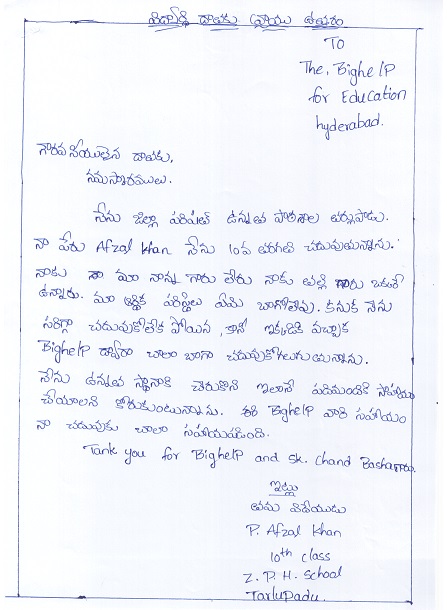 విద్యార్థి దాతకు వ్రాయు ఉత్తరం
TO
The, BigheLP
for Education
hyderabad.
గౌరవనీయులైన దాతకు,
నమస్కారములు.
నేను జిల్లా పరిషత్ ఉన్నత పాఠశాల తర్లుపాడు.
నా పేరు Afzal khan నేను 10వ తరగతి చదువుతున్నాను.
నాకు మా నాన్న గారు లేరు నాకు తల్లి గారు ఒకరే
ఉన్నారు. మా ఆర్థిక పరిస్థితి ఏమి బాగోలేవు. కనుక నేను
సరిగ్గా చదువుకోలేక పోయిన, కానీ ఇక్కడికి వచ్చాక
BigheLP ద్వారా చాలా బాగా చదువుకోగలుగుతున్నాను.
నేను ఉన్నత స్థానానికి చేరుకొని ఇలానే పదిమందికి సాహాయం
చేయాలని కోరుకుంటున్నాను. BigheLP వారి సహాయం
నా చదువుకు చాలా సహాయపడింది.
Tank you for BigheLP and Sk. Chand Bashaగారు.
ఇట్లు
తమ విధేయుడు
P. Afzal Khan
10th class
Z. P. H. School
Tarlupadu.